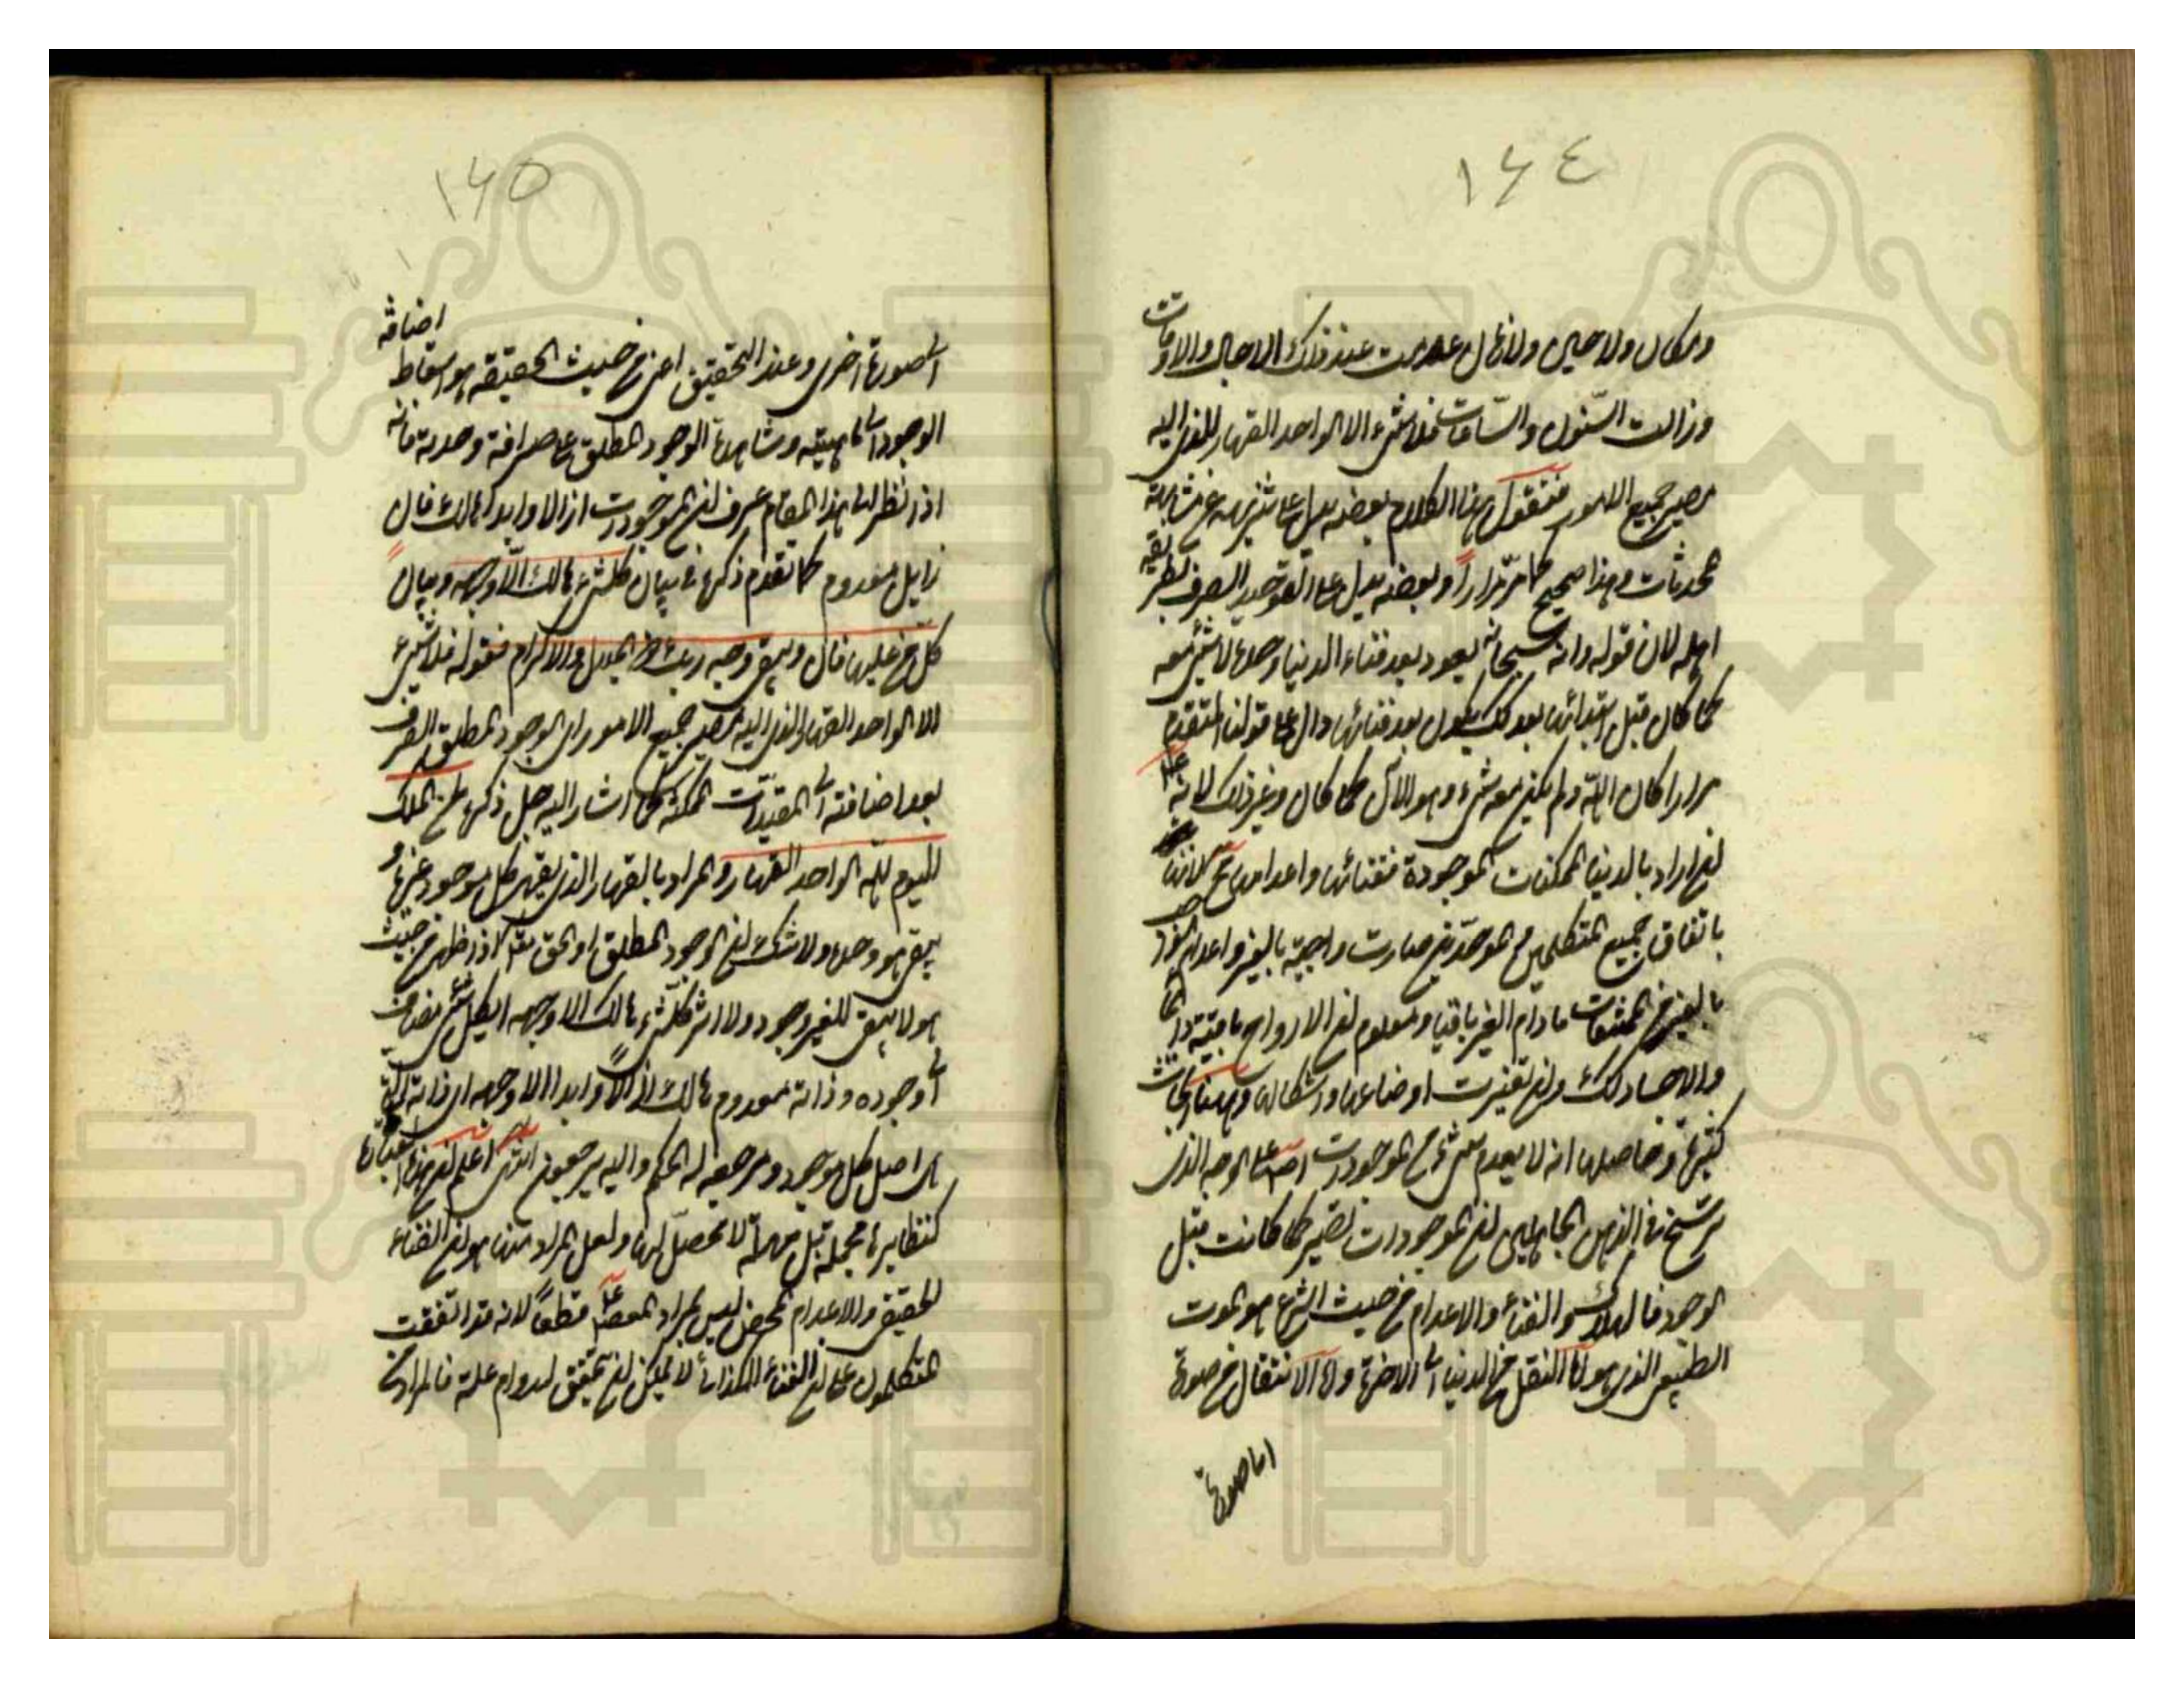 ١٦٤
ومكان ولا حين ولا زمان عدمت عند ذلك الاجال والاوقات
وزالت السنون والساعات فلا شيء الا الواحد القهار الذي اليه
مصير جميع الامور فنقول هذا الكلام بعضه يدل على تنزيهه عن مشابهة
المحدثات وهذا صحيح كما مر مرارا وبعضه يدل على التوحيد الصرف بطريقة
اهله لان قوله وانه سبحانه يعود بعد فناء الدنيا وحده لا شيء معه
كما كان قبل ابتدائها كذلك يكون بعد فنائها دال على قولنا المتقدم
مرارا كان الله ولم يكن معه شيء وهو الآن كما كان وغير ذلك لانه
ان اراد بالدنيا الممكنات الموجودة ففنائها واعدامها لانها
باتفاق جميع المتكلمين والموحدين صارت واجبة بالغير واعدام
بالغير من الممتنعات ما دام الغير باقيا ومعلوم ان الارواح باقية دائما
والاجساد كذلك وان تغيرت اوضاعها واشكالها وههنا ابحاث
كثيرة وحاصلها انه لا يعدم شيء من الموجودات اصلا على الوجه الذي
ترسخ في اذهان الجاهلين ان الموجودات تصير كما كانت قبل
الوجود فالهلاك والفناء والاعدام من حيث الشرع هو الموت
الطبيعي الذي هو النقل من الدنيا الى الاخرة والانتقال من صورة
اما صورة
١٦٥
الى صورة اخرى وعند التحقيق اعني من حيث الحقيقة هو اسقاط اضافة
الوجود الى الماهية ومشاهدة الوجود المطلق على صرافة وحدته فانه
اذا نظر الى هذا المقام عرف ان الموجودات ازلا وابدا هالك فان
زايل معدوم كما تقدم ذكرها في بيان كل شيء هالك الا وجهه وبيان
كل من عليها فان ويبقى وجه ربك ذو الجلال والاكرام فقوله فلا شيء
الا الواحد القهار الذي اليه مصير جميع الامور اي الوجود المطلق الصرف
بعد اضافته الى المقيدات الممكنة كما اشار اليه جل ذكره لمن الملك
اليوم لله الواحد القهار والمراد بالقهار الذي يقهر كل موجود غيره و
يبقى هو وحده ولا شك ان الوجود المطلق او الحق تعالى اذا ظهر من حيث
هو لا يبقى للغير وجود ولا اثر كل شيء هالك الا وجهه اي كل شيء يضاف
الى وجوده وذاته معدوم هالك ازلا وابدا الا وجهه اي ذاته التي
هي اصل كل موجود ومرجعه له الحكم واليه يرجعون انتهى اعلم ان هذه العبارة
كنظايرها مجملة بل مهملة لا محصل لها ولعل المراد منها هو ان الفناء
الحقيقي والاعدام المحض ليس بمراد قطعا لانه قد اتفقت
المتكلمون على ان الفناء لا يمكن ان يتحقق لدوام علته فالمراد من